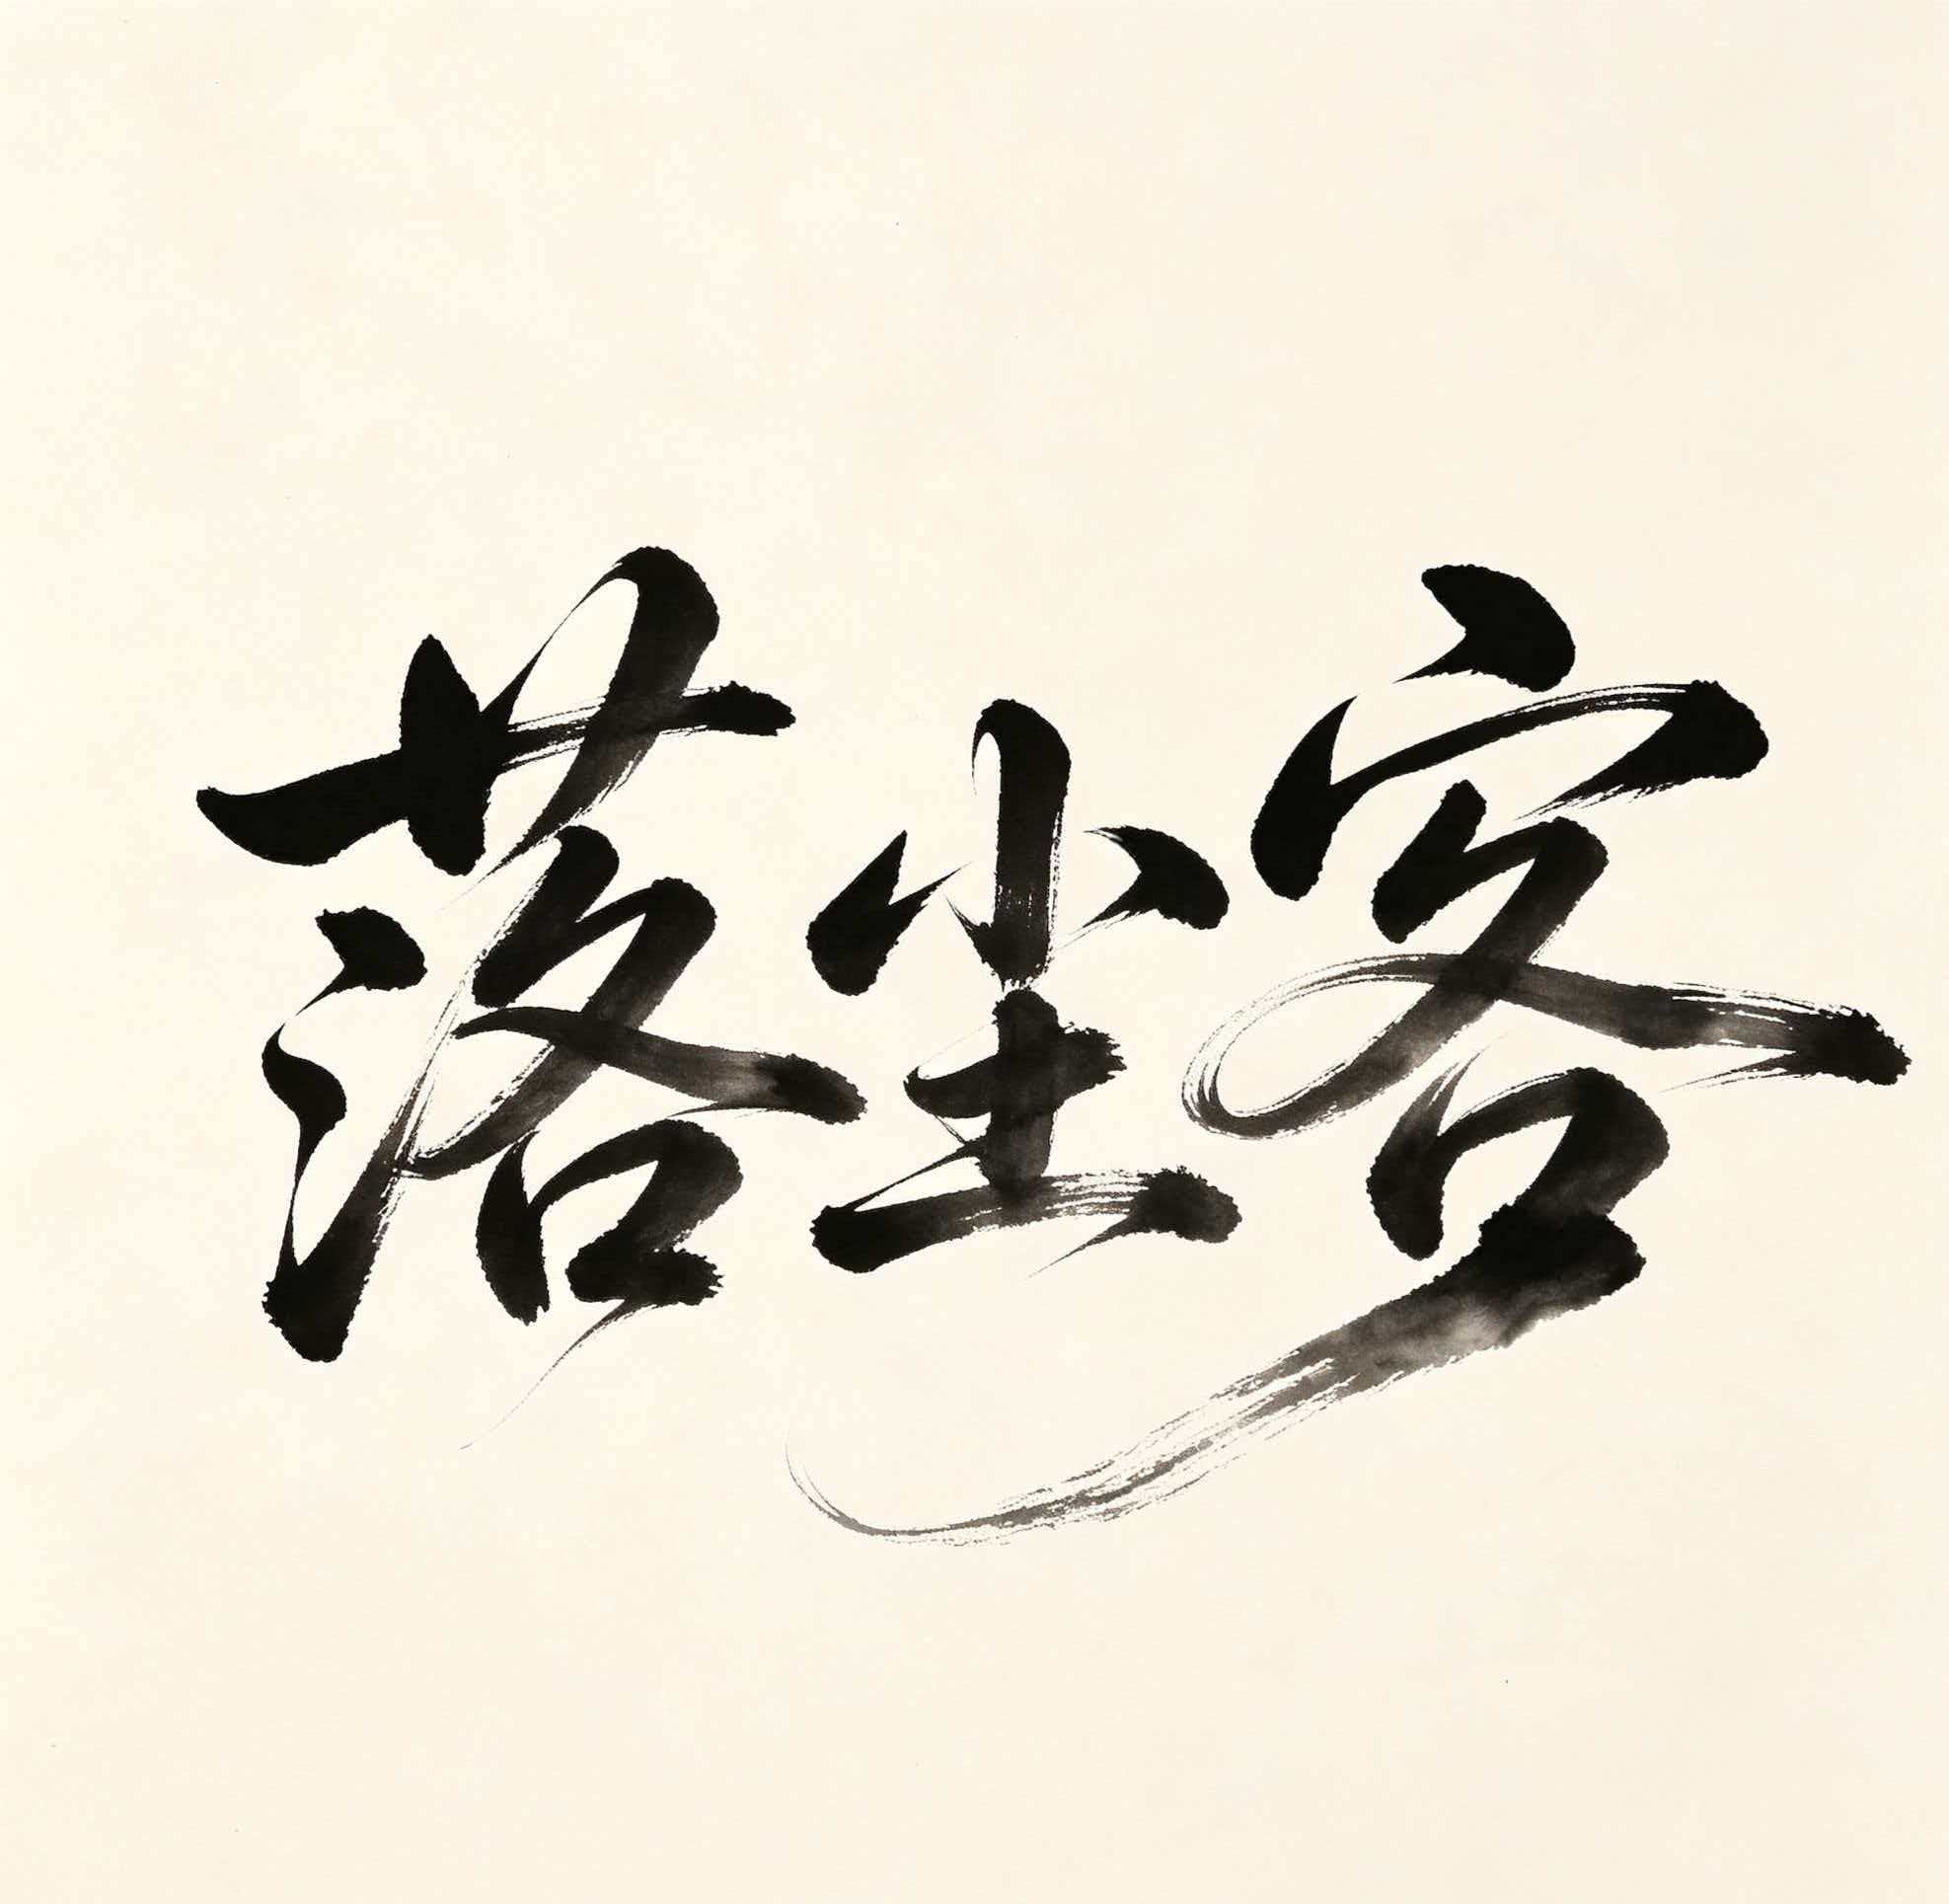 落尘客